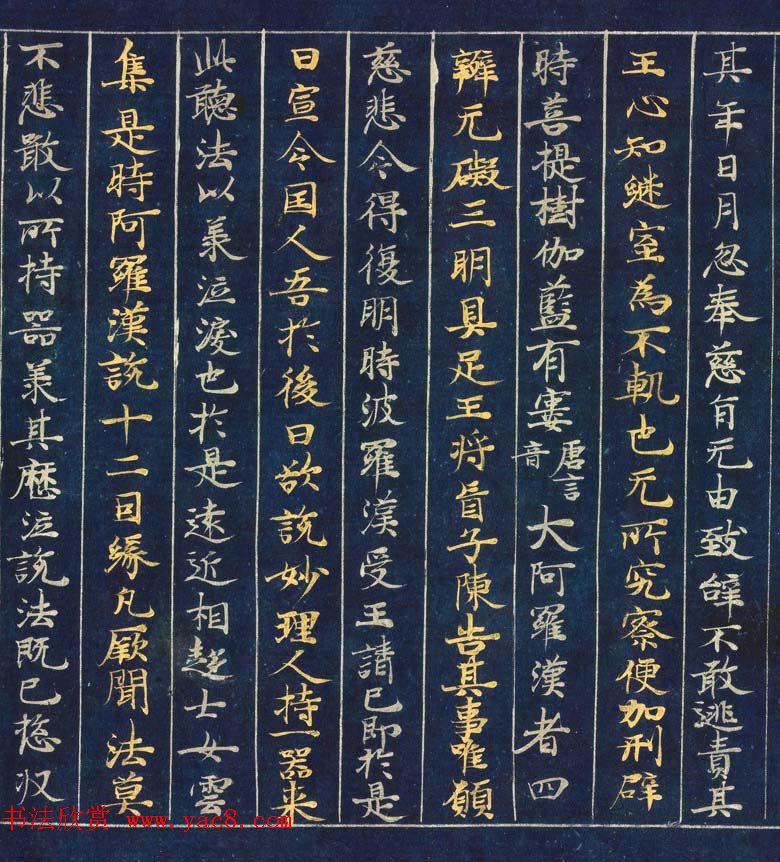 其年日月忽奉慈旨无由致辤不敢逃責其
王心知継室為不軌也无所究察便加刑辟
時菩提樹伽藍有寠唐言音大阿羅漢者四
辯无礙三明具足王将盲子陳告其事唯願
慈悲令得復明時波羅漢受王請已即於是
日宣令国人吾於後日欲説妙理人持一器来
此聽法以羕泣淚也於是遠近相趍士女雲
集是時阿羅漢說十二因緣凡厥聞法莫
不悲敢以所持器羕其瀝泣說法既已揔収
书法欣赏 www.yac8.com